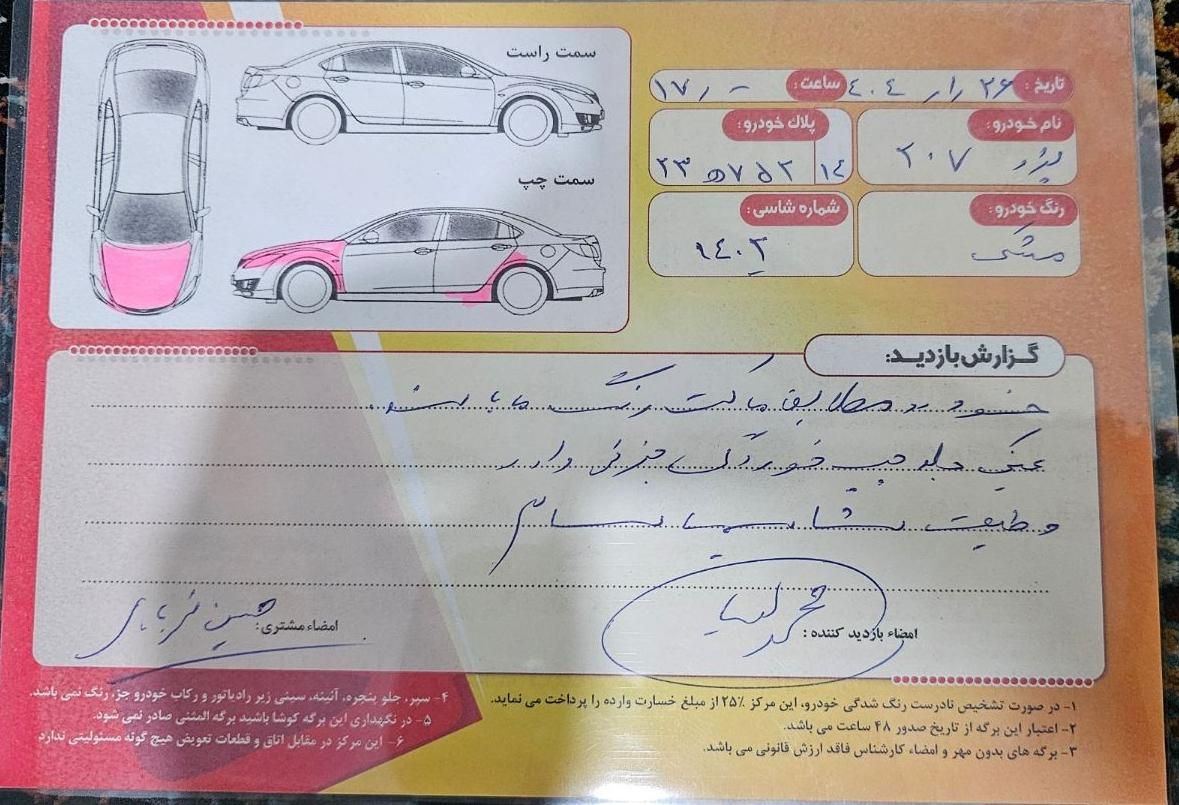 سمت راست
سمت چپ
تاریخ: ۲۶ /۱/ ۴۰۴ ساعت: ۱۷/-
نام خودرو: پژو ۲۰۷
پلاک خودرو: ۲۳ ۷۵۲ ۱۴
رنگ خودرو: مشکی
شماره شاسی: ۱۴۰۲
گزارش بازدید:
خودرو مطابق ماکت رنگ می باشد.
عینکی جلو چپ خوردگی جزئی دارد
وضعیت شاسیها سالم
امضاء بازدید کننده:
امضاء مشتری:
۱- در صورت تشخیص نادرست رنگ شدگی خودرو، این مرکز ۲۵٪ از مبلغ خسارت وارده را پرداخت می نماید.
۲- اعتبار این برگه از تاریخ صدور ۴۸ ساعت می باشد.
۳- برگه های بدون مهر و امضاء کارشناس فاقد ارزش قانونی می باشد.
۴- سپر، جلو پنجره، آئینه، سینی زیر رادیاتور و رکاب خودرو جزء رنگ نمی باشد.
۵- در نگهداری این برگه کوشا باشید برگه المثنی صادر نمی شود.
۶- این مرکز در مقابل اتاق و قطعات تعویض هیچ گونه مسئولیتی ندارد